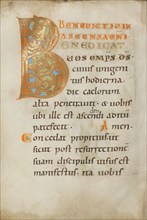 BENEDICTIO IN
ASCENSA DNI
BENEDICAT
UOS OMPS DS
cuius unigeni
tus hodierna
die caelorum
alta penetrauit & uobis
ubi ille est ascendi aditū
patefecit. Amen.
Concedat propitius ut
sicut post resurrectionē
suam discipulis uisus est
manifestus ita uobis